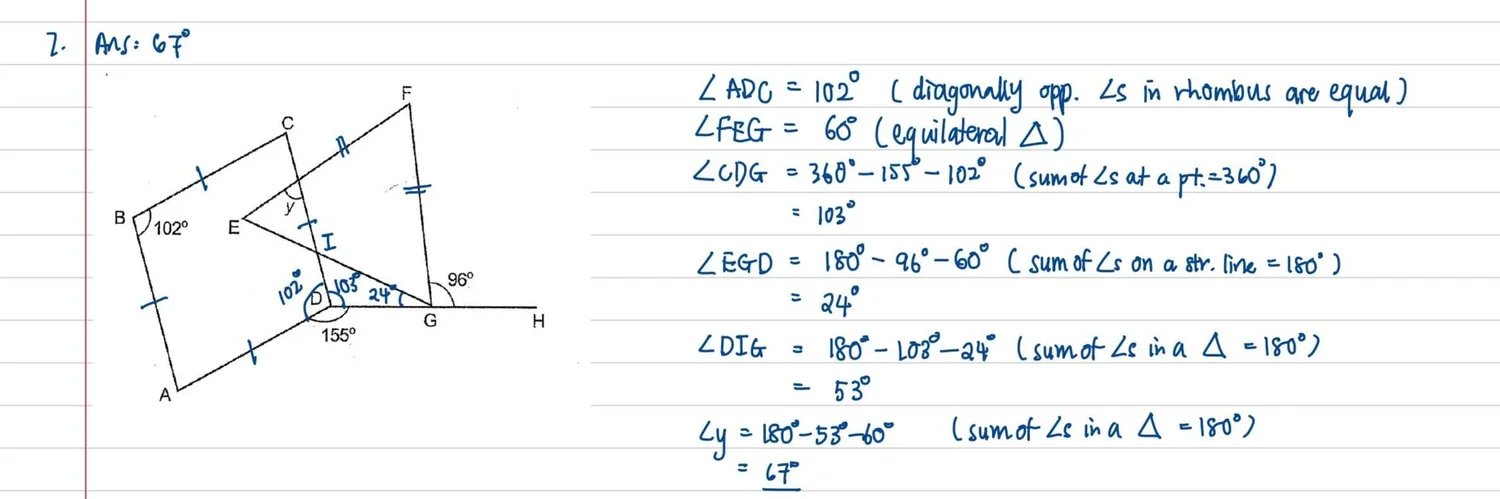 7. Ans: 67°
F
C
B
102°
y
E
I
102°
D
103°
24°
96°
155°
G
H
A
∠ADC = 102° (diagonally opp. ∠s in rhombus are equal)
∠FEG = 60° (equilateral Δ)
∠CDG = 360° - 155° - 102° (sum of ∠s at a pt. = 360°)
= 103°
∠EGD = 180° - 96° - 60° (sum of ∠s on a str. line = 180°)
= 24°
∠DIG = 180° - 103° - 24° (sum of ∠s in a Δ = 180°)
= 53°
∠y = 180° - 53° - 60° (sum of ∠s in a Δ = 180°)
= 67°